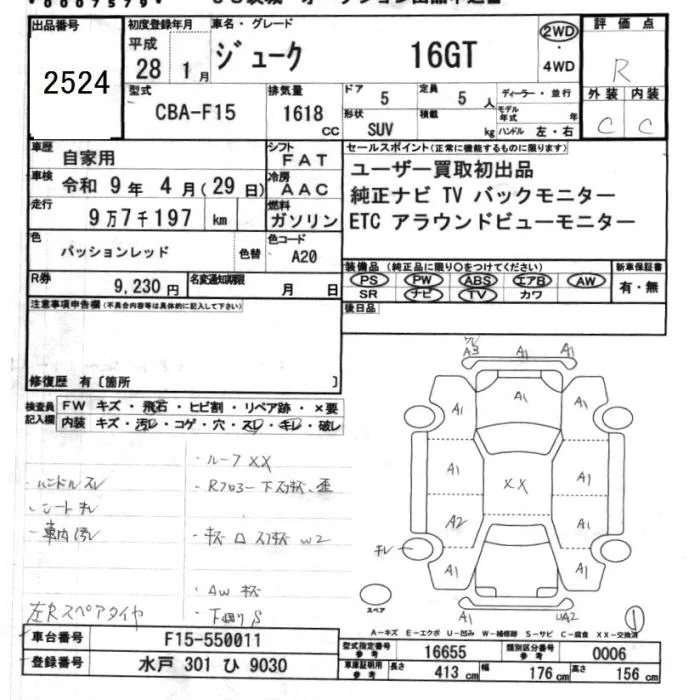 出品番号 初度登録年月 車名・グレード 2WD 評価点
2524 平成 28年 1月 ジューク 16GT ・ 4WD R
型式 排気量 ドア 定員 ディーラー・並行 外装 内装
CBA-F15 1618 cc 5 5人 モデル年式 年 C C
形状 SUV 積載 kg ハンドル 左・右
車歴 自家用 シフト FAT セールスポイント(正常に機能するものに限ります)
車検 令和 9年 4月(29日) 冷房 AAC ユーザー買取初出品
走行 9万7千197 km 燃料 ガソリン 純正ナビ TV バックモニター
ETC アラウンドビューモニター
色 パッションレッド 色替 色コード A20
装備品(純正品に限り○をつけてください) 新車保証書
R券 9,230円 名変通知期限 月 日 PS PW ABS エアB AW 有・無
SR ナビ TV カワ
注意事項申告欄(不具合内容等は具体的に記入して下さい) 後日品
修復歴 有〔箇所 〕
検査員記入欄 FW キズ・飛石・ヒビ割・リペア跡・×要
内装 キズ・汚レ・コゲ・穴・スレ・キレ・破レ
・ハンドルスレ
・シートキレ
・車内汚レ
・ルーフXX
・Rフロアー下
・AWキズ
・下廻りS
左Rスペアタイヤ
A3 A1 A1
A1 A1 A1
A1 XX A1
A2 A1
キレ
A1 A1
A1 UA2
スペア
1
A-キズ E-エクボ U-凹み W-補修跡 S-サビ C-腐食 XX-交換済
車台番号 F15-550011
登録番号 水戸 301 ひ 9030
型式指定番号 参考 16655 類別区分番号 参考 0006
車庫証明用 参考 長さ 413 cm 幅 176 cm 高さ 156 cm